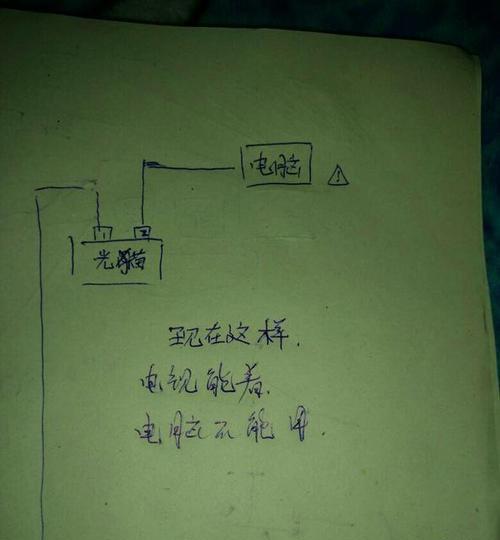 电脑
!
1 2
光猫
现在这样.
电视能看.
电脑不能用.